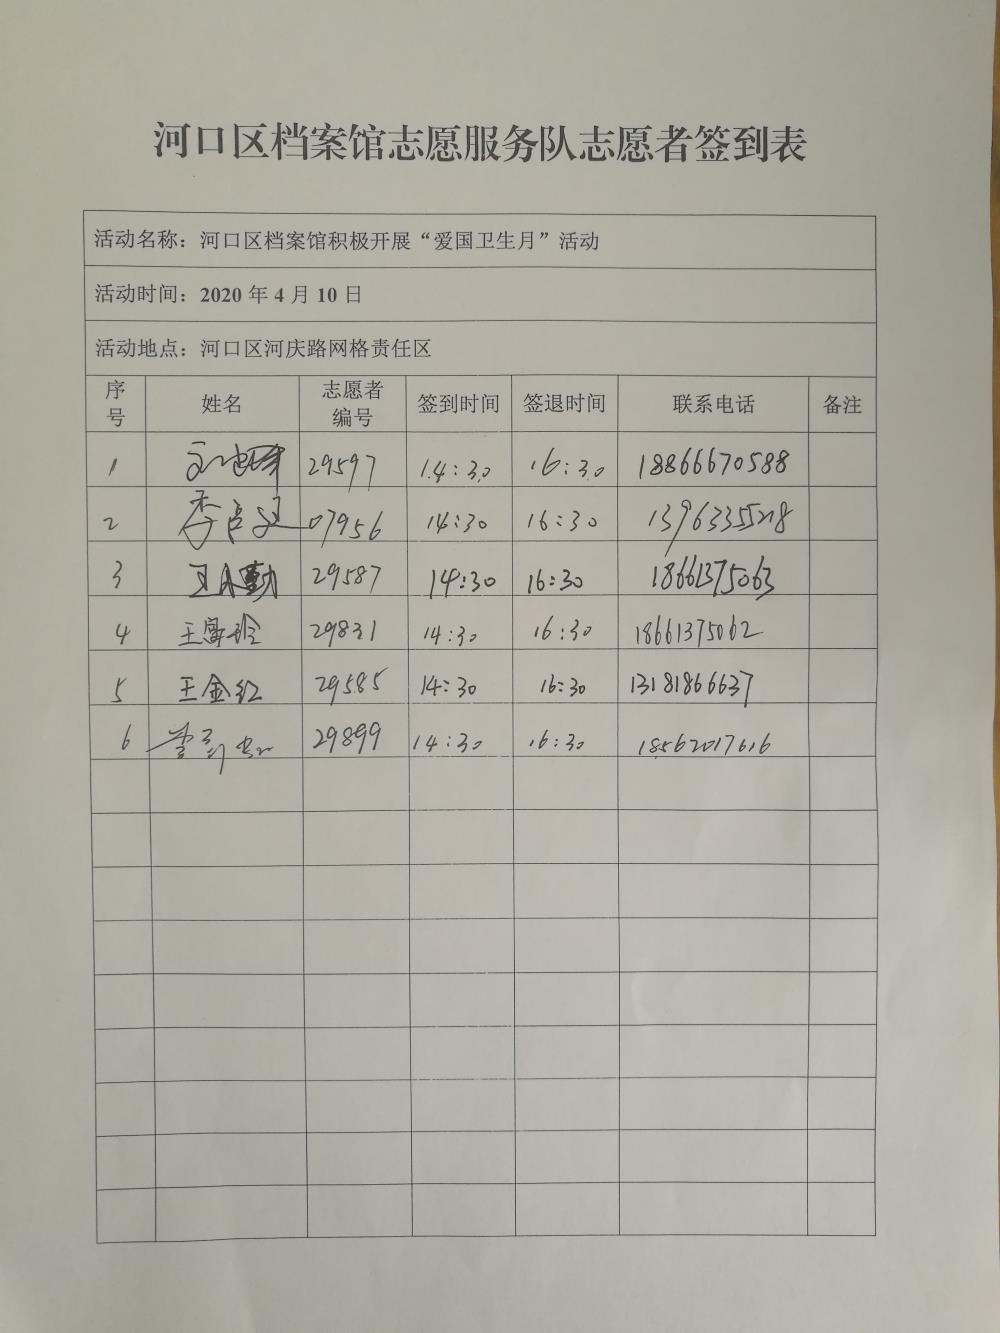 河口区档案馆志愿服务队志愿者签到表
活动名称：河口区档案馆积极开展“爱国卫生月”活动
活动时间：2020 年 4 月 10 日
活动地点：河口区河庆路网格责任区
序号 姓名 志愿者编号 签到时间 签退时间 联系电话 备注
1 29597 14:30 16:30 18866670588
2 07956 14:30 16:30
3 29587 14:30 16:30 18661375063
4 29831 14:30 16:30 18661375062
5 王金红 29585 14:30 16:30 13181866637
6 29899 14:30 16:30 18562017616